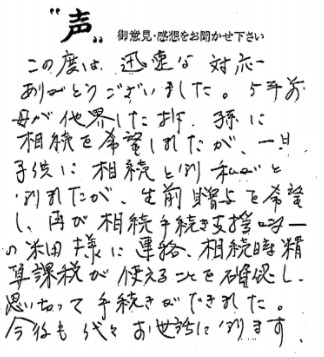 "声" 御意見・感想をお聞かせ下さい
この度は、迅速な対応
ありがとうございました。5年前
母が他界した折、孫に
相続を希望しましたが、一旦
子供に相続と
が、生前贈与を希望
し、再び相続手続き支援
の米田様に連絡、相続時精
算課税が使えることを確認し、
思い切って手続きができました。
今後も代々お世話になります。